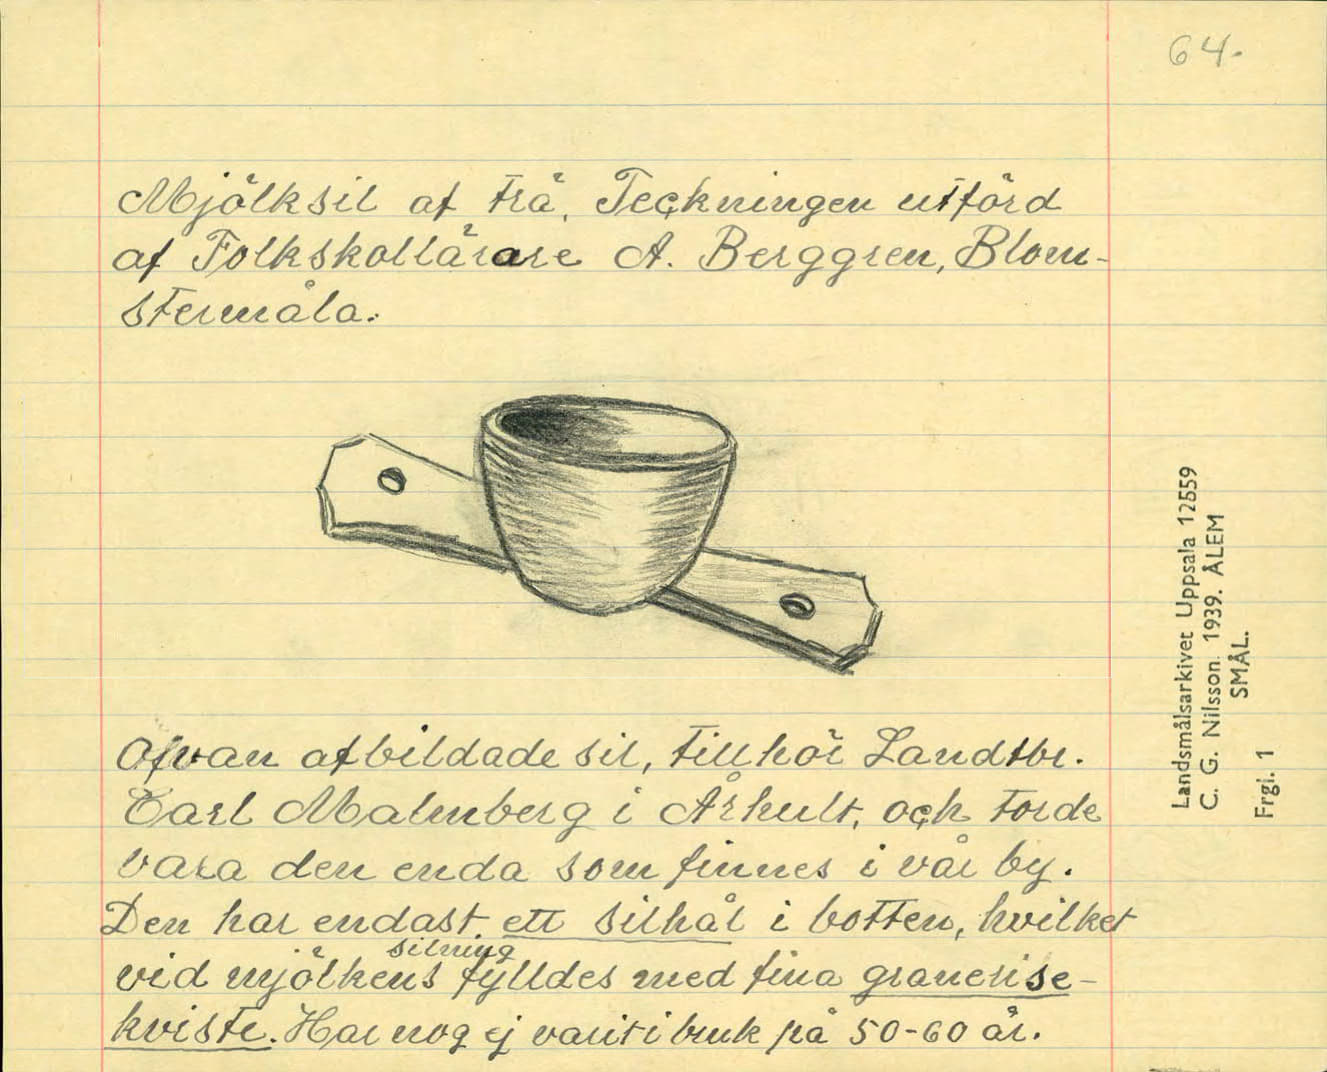 64.
Mjölksil af trä. Teckningen utförd
af Folkskollärare A. Berggren, Blom-
stermåla.
Ofvan afbildade sil, tillhör Landtbr.
Carl Malmberg i Århult, och torde
vara den enda som finnes i vår by.
Den har endast ett silhål i botten, hvilket
vid mjölkens silning fylldes med fina granerise-
kviste. Har nog ej varit i bruk på 50-60 år.
Landsmålsarkivet Uppsala 12559
C. G. Nilsson. 1939. ÅLEM
SMÅL.
Frgl. 1